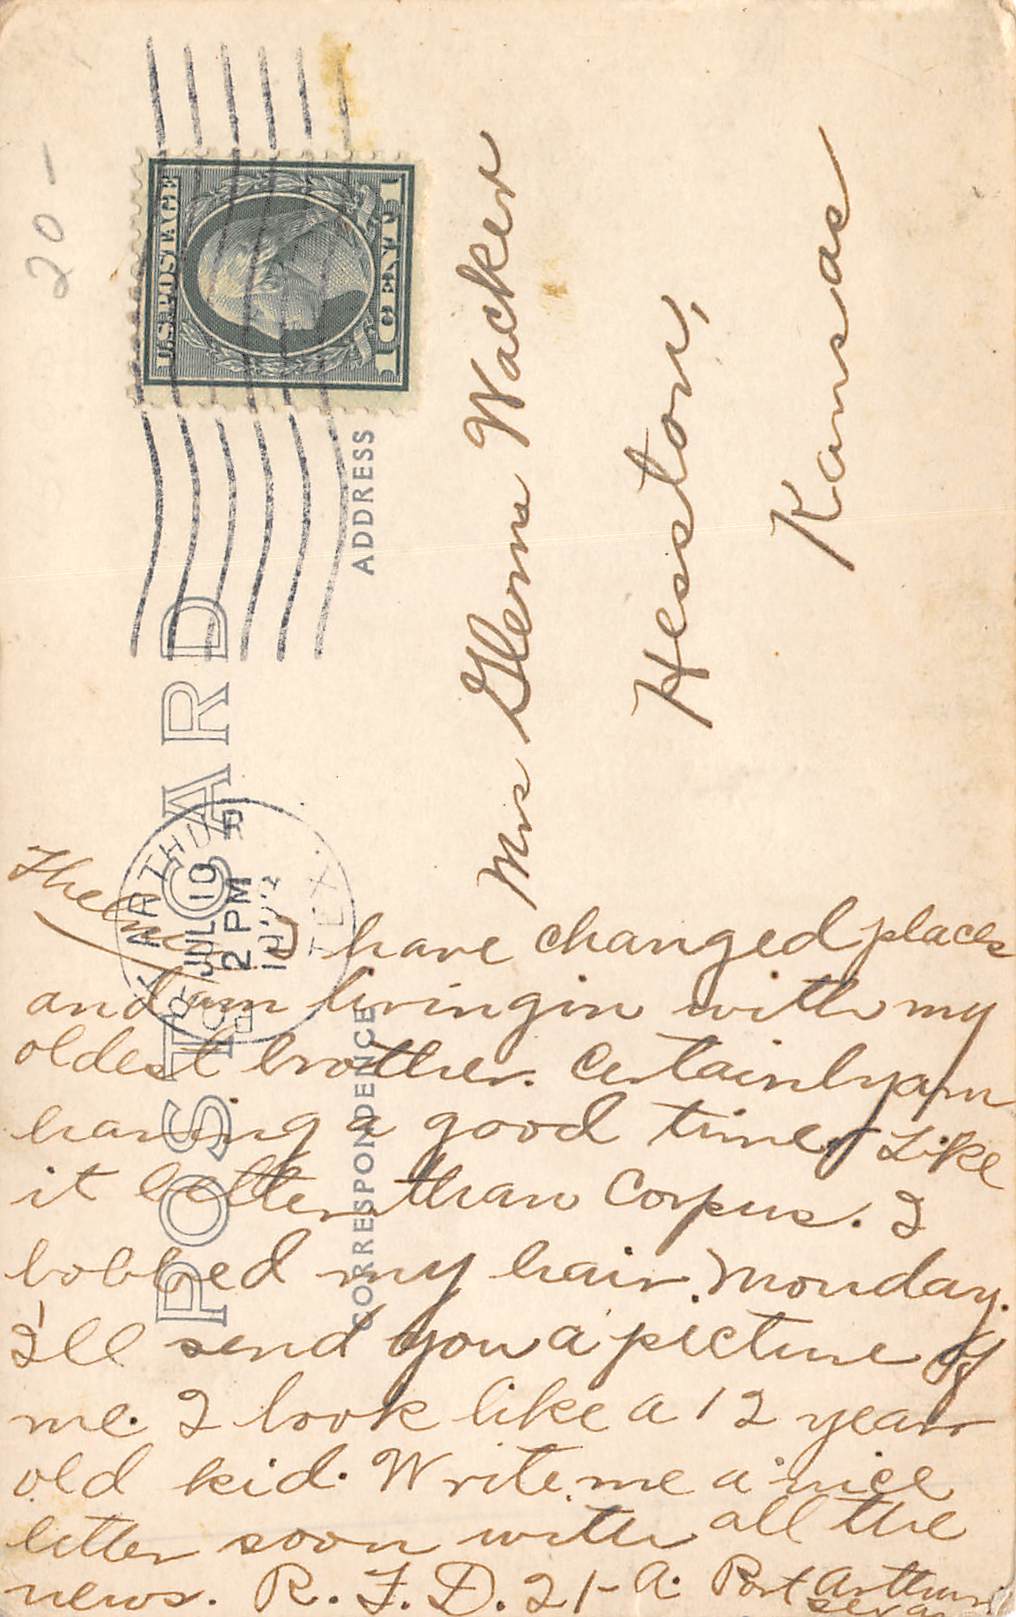 20-
U.S. POSTAGE
1 CENT 1
POST CARD
CORRESPONDENCE
ADDRESS
PORT ARTHUR
JUL 10
2 PM
TEX.
Mrs Glenna Wacker
Heston,
Kansas
Thelma
I have changed places
and am livingin with my
oldest brother. Certainly am
having a good time, Like
it better than Corpus. I
bobbed my hair Monday.
I'll send you a picture of
me. I look like a 12 year
old kid. Write me a nice
letter soon with all the
news. R. F. D. 21-A. Port Arthur